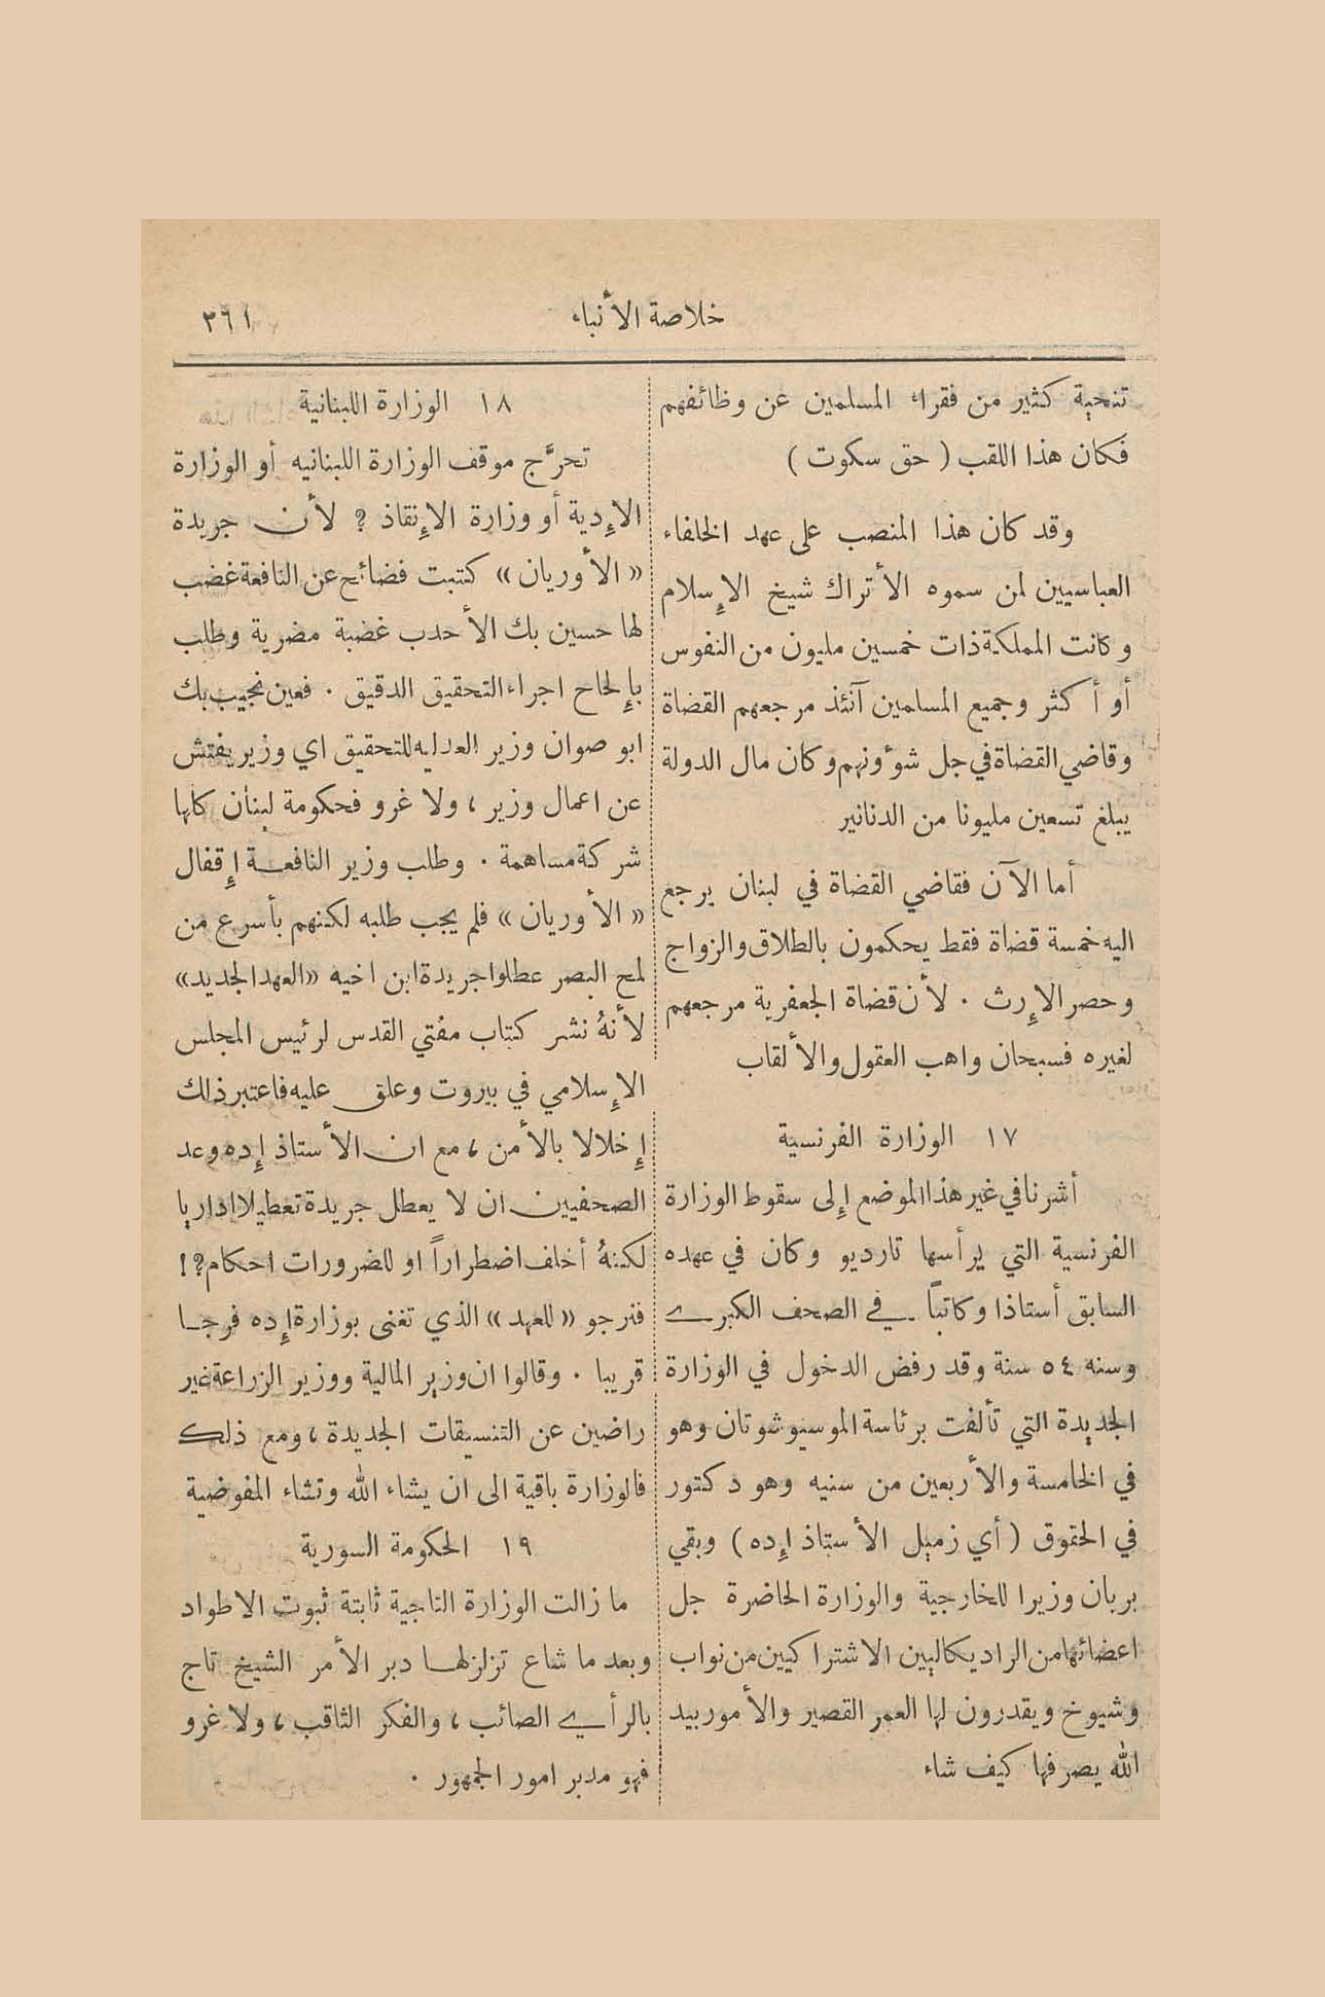 خلاصة الأنباء
٣٦١
تنحية كثير من فقراء المسلمين عن وظائفهم
فكان هذا اللقب ( حق سكوت )
وقد كان هذا المنصب على عهد الخلفاء
العباسيين لمن سموه الأتراك شيخ الإسلام
وكانت المملكة ذات خمسين مليون من النفوس
أو أكثر وجميع المسلمين آنئذ مرجعهم القضاة
وقاضي القضاة في جل شؤونهم وكان مال الدولة
يبلغ تسعين مليونا من الدنانير
أما الآن فقاضي القضاة في لبنان يرجع
اليه خمسة قضاة فقط يحكمون بالطلاق والزواج
وحصر الإرث . لأن قضاة الجعفرية مرجعهم
لغيره فسبحان واهب العقول والألقاب
١٧ الوزارة الفرنسية
أشرنا في غير هذا الموضع إلى سقوط الوزارة
الفرنسية التي يرأسها تارديو وكان في عهده
السابق أستاذا وكاتباً في الصحف الكبرى
وسنه ٥٤ سنة وقد رفض الدخول في الوزارة
الجديدة التي تألفت برئاسة الموسيو شوتان وهو
في الخامسة والأربعين من سنيه وهو دكتور
في الحقوق ( أي زميل الأستاذ إده ) وبقي
بريان وزيرا للخارجية والوزارة الحاضرة جل
اعضائها من الراديكاليين الاشتراكيين من نواب
وشيوخ ويقدرون لها العمر القصير والأمور بيد
الله يصرفها كيف شاء
١٨ الوزارة اللبنانية
تحرَّج موقف الوزارة اللبنانيه أو الوزارة
الإدية أو وزارة الإنقاذ ? لأن جريدة
«الأوريان» كتبت فضائح عن النافعة غضب
لها حسين بك الأحدب غضبة مضرية وطلب
بإلحاح اجراء التحقيق الدقيق . فعين نجيب بك
ابو صوان وزير العدليه للتحقيق اي وزير يفتش
عن اعمال وزير ، ولا غرو فحكومة لبنان كلها
شركة مساهمة . وطلب وزير النافعة إقفال
«الأوريان» فلم يجب طلبه لكنهم بأسرع من
لمح البصر عطلوا جريدة ابن اخيه «العهد الجديد»
لأنهُ نشر كتاب مفتي القدس لرئيس المجلس
الإسلامي في بيروت وعلق عليه فاعتبر ذلك
إخلالا بالأمن ، مع ان الأستاذ إده وعد
الصحفيين ان لا يعطل جريدة تعطيلا اداريا
لكنهُ أخلف اضطراراً او للضرورات احكام ?!
فنرجو «للعهد» الذي تغنى بوزارة إده فرجا
قريبا . وقالوا ان وزير المالية ووزير الزراعة غير
راضين عن التنسيقات الجديدة ، ومع ذلك
فالوزارة باقية الى ان يشاء الله وتشاء المفوضية
١٩ الحكومة السورية
ما زالت الوزارة التاجية ثابتة ثبوت الاطواد
وبعد ما شاع تزلزلها دبر الأمر الشيخ تاج
بالرأي الصائب ، والفكر الثاقب ، ولا غرو
فهو مدبر امور الجمهور .